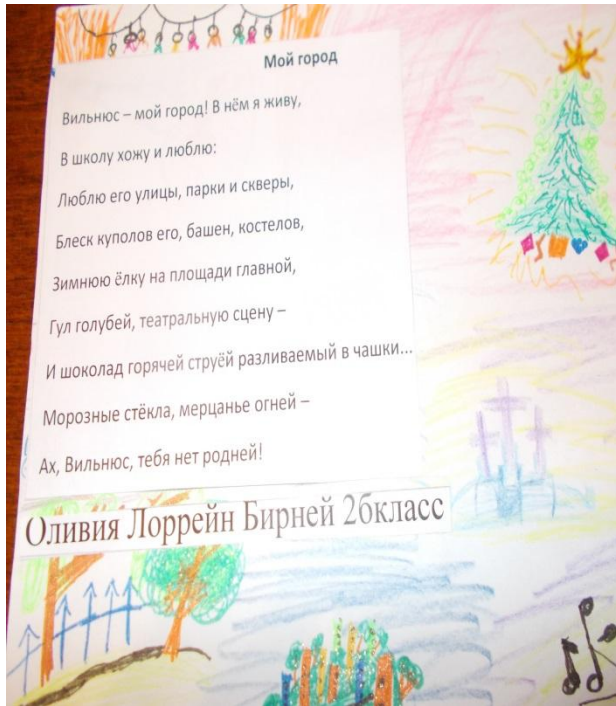 Мой город
Вильнюс – мой город! В нём я живу,
В школу хожу и люблю:
Люблю его улицы, парки и скверы,
Блеск куполов его, башен, костелов,
Зимнюю ёлку на площади главной,
Гул голубей, театральную сцену –
И шоколад горячей струёй разливаемый в чашки...
Морозные стёкла, мерцанье огней –
Ах, Вильнюс, тебя нет родней!
Оливия Лоррейн Бирней 2бкласс